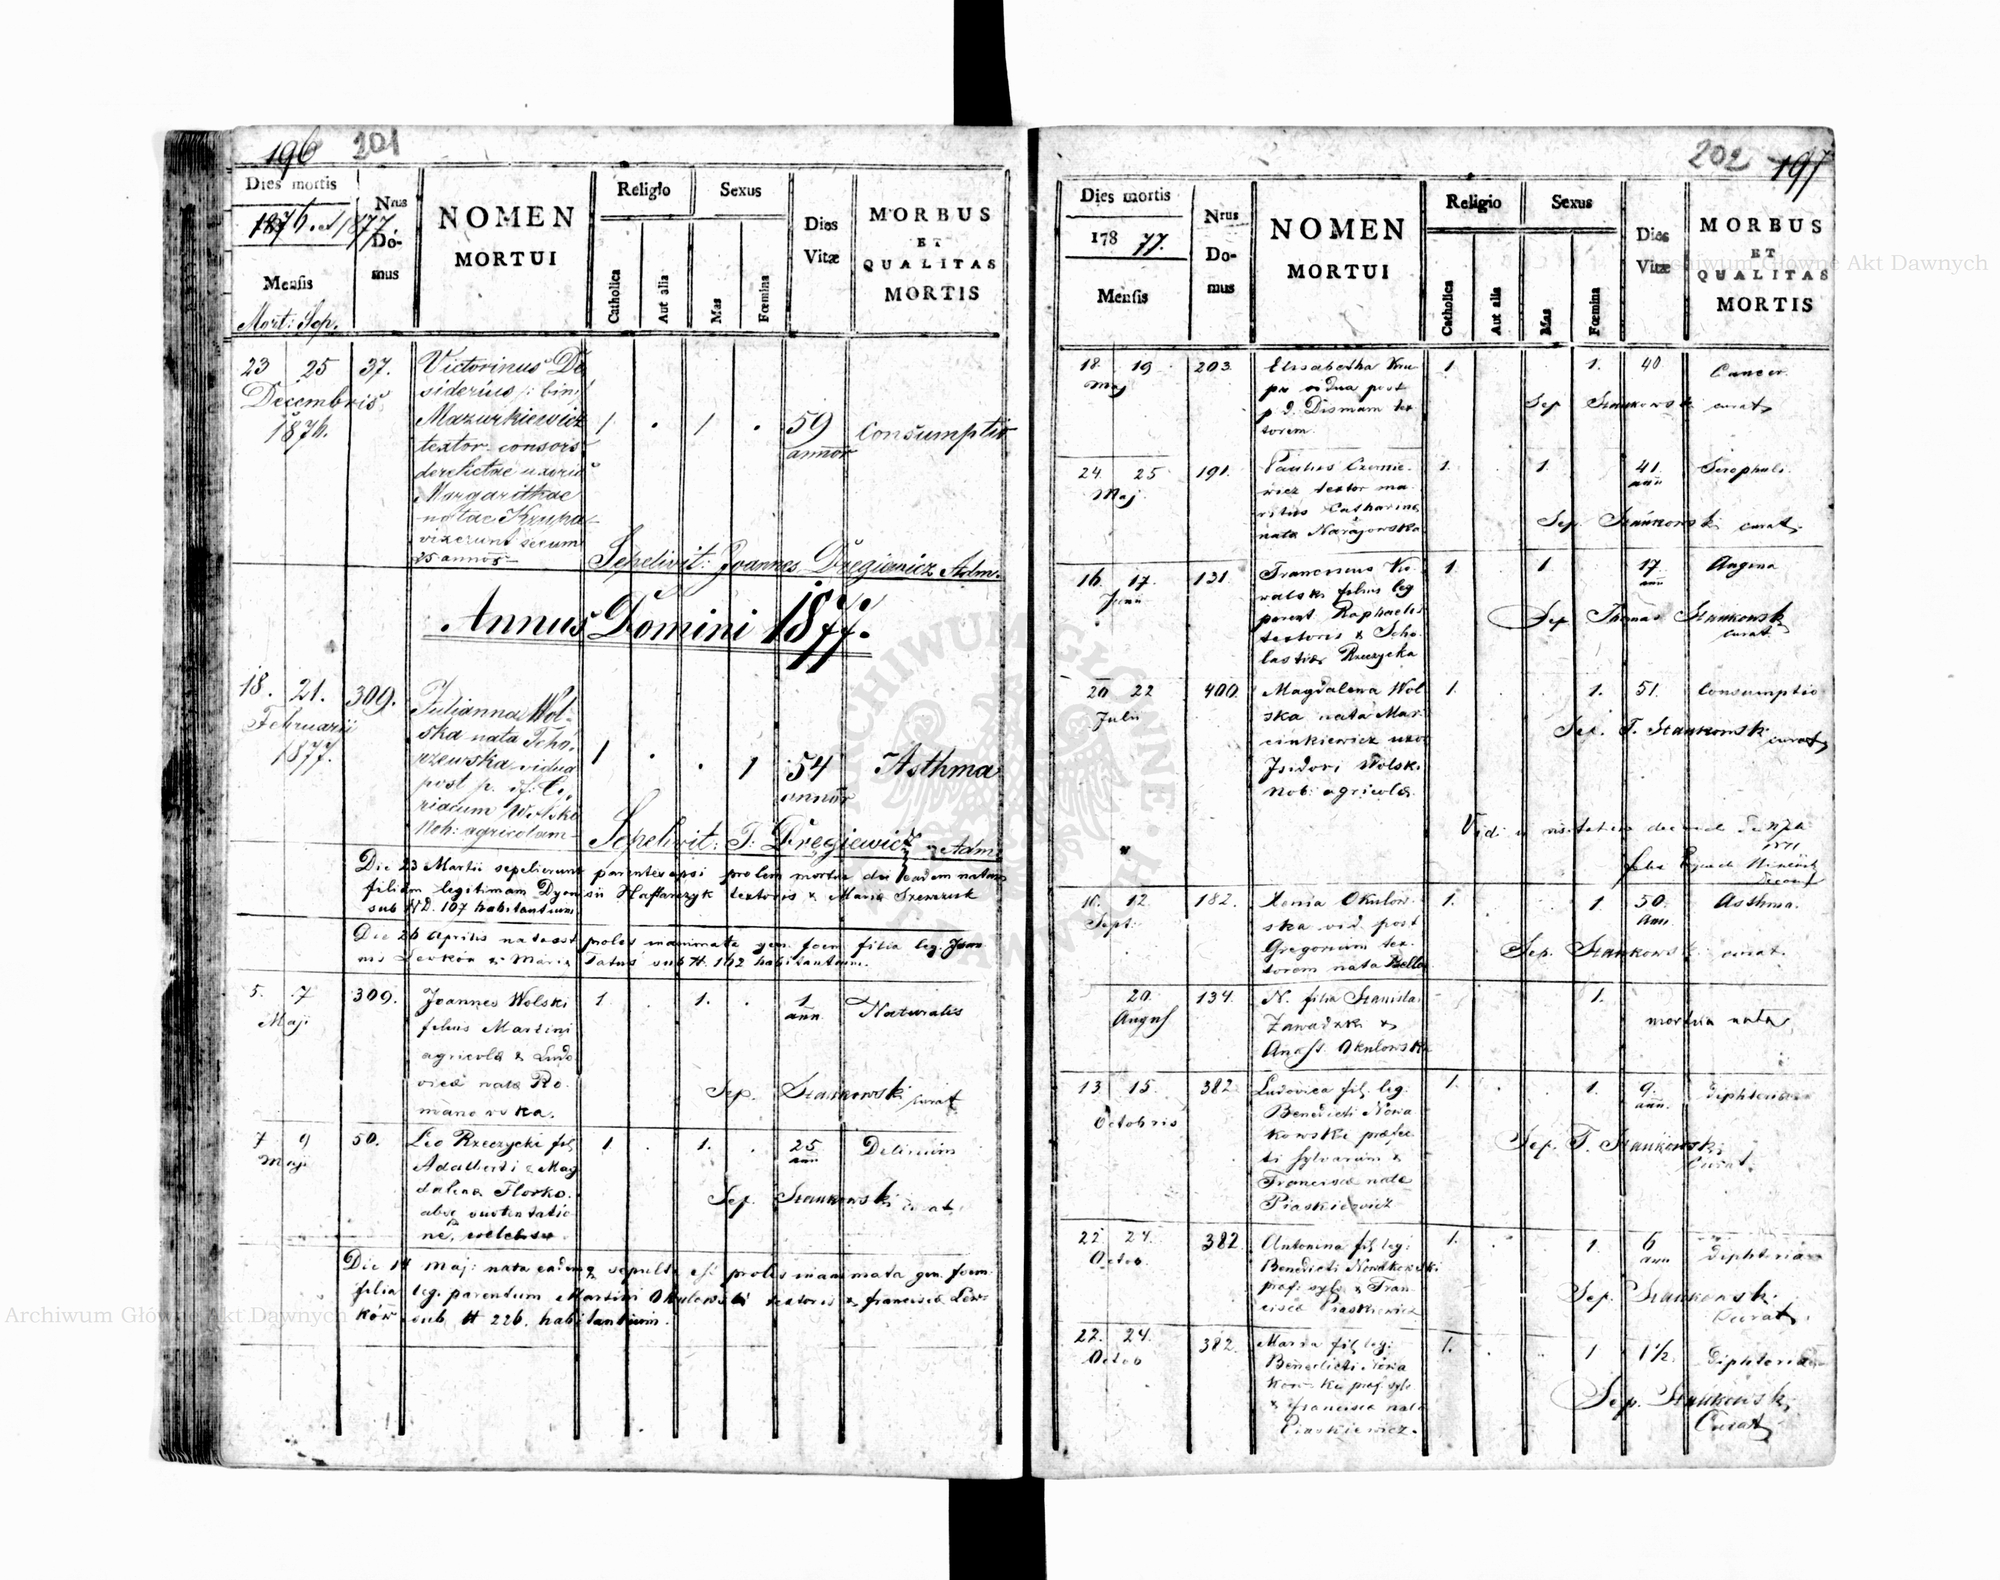 196 201
Dies mortis
1876. et 1877.
Mensis
Mort: Sep.
Nrus
Do-
mus
NOMEN
MORTUI
Religio
Catholica
Aut alia
Sexus
Mas
Fœmina
Dies
Vitæ
MORBUS
ET
QUALITAS
MORTIS
23 25 37.
Decembris
1876.
Victorinus De
siderius /: bin:
Mazurkiewicz
textor consors
derelictae uxoris
Margarithae
natae Krupa
vixerunt secum
25 annos
1 . 1 . 59
annor
Consumptio
Sepelivit: Joannes Dręgiewicz Adm.
Annus Domini 1877.
18. 21. 309.
Februarii
1877.
Julianna Wol-
ska nata Tchó-
rzewska vidua
post p. d:
riacum Wolski
Nob: agricolam
1 . . 1 54
annor
Asthma
Sepelivit: J: Dręgiewicz Adm:
Die 23 Martii sepelierunt parentes ipsi prolem mortuam eadem natam
filiam legitimam Dyoni sii Haftarczyk textoris & Maria Szewczuk
sub ND. 107 habitantium
Die 26 Aprilis nata est proles inanimata gen. foem. filia leg. Joan
nis Lewków & Maria Tatus sub N. 162 habitantium.
5. 7 309.
Maji
Joannes Wolski
filius Martini
agricola & Ludo
vica nata Ro
manowska.
1. . 1. . 1
ann.
Naturalis
Sep. Stankowski curat
7 9 50.
Maji
Leo Rzeczycki fil,
Adalberti & Mag
dalena Florko.
abs sustentatio
ne,
1. . 1. . 25
ann
Delirium
Sep. Stankowski curat.
Die 14 Maj: nata eademq sepulta est proles inanimata gen. foem.
filia leg. parentum Martini Okulowski textoris & francisca Lew-
ków sub N 226. habitantium.
202 197
Dies mortis
178 77.
Mensis
Nrus
Do-
mus
NOMEN
MORTUI
Religio
Catholica
Aut alia
Sexus
Mas
Fœmina
Dies
Vitæ
MORBUS
ET
QUALITAS
MORTIS
18 19 203.
Maj
Elisabetha Kru
pa vidua post
p. d. Dismam tex
torem.
1. 1. 40
Cancer.
Sep Stankowski curat
24 25 191.
Maj
Paulus Czernie-
wicz textor ma-
ritus Catharina
nata Narajowska
1. . 1. 41.
ann
Scrophuli.
Sep. Stankowski curat.
16 17 131.
Junii
Franciscus Ko
walski filius leg
parent Raphaelis
textoris & Scho
lastica Rzeczycka
1. . 1. 17
ann
Angina
Sep Thomas Stankowski
curat
20 22 400.
Julii
Magdalena Wol
ska nata Mar
cinkiewicz uxor
Isidori Wolski
Nob: agricola.
1. . 1. 51.
Consumptio
Sep. T. Stankowski curat
Vidi in visitatione decanali
1877
10. 12. 182.
Sept.
Xenia Okulow-
ska vid. post
Gregorium tex-
torem nata Bella
1. 1. 50.
Ann.
Asthma.
Sep. Stankowski curat.
20. 134.
August
N. filia Stanislai
Zawadzki &
Anast. Okulowska
1.
mortua nata
13 15 382.
Octobris
Ludovica fil. leg.
Benedicti Nowa
kowski præfec
ti sylvarum &
Francisca nata
Piaskiewicz
1. . 1. 9.
ann.
diphteria
Sep. T. Stankowski
Curat.
22 24. 382.
Octob
Antonina fil leg:
Benedicti Nowakowski
præf: sylv & Fran-
cisca Piaskiewicz
1. . 1. 6
ann
diphteria
Sep. Stankowski
Curat.
22. 24. 382.
Octob
Maria fil leg:
Benedicti Nowa
kowski præf. sylv.
& francisca nata
Piaskiewicz.
1. . 1 1½.
diphteria
Sep. Stankowski
Curat
ARCHIWUM GŁÓWNE AKT DAWNYCH
Archiwum Główne Akt Dawnych
Archiwum Główne Akt Dawnych